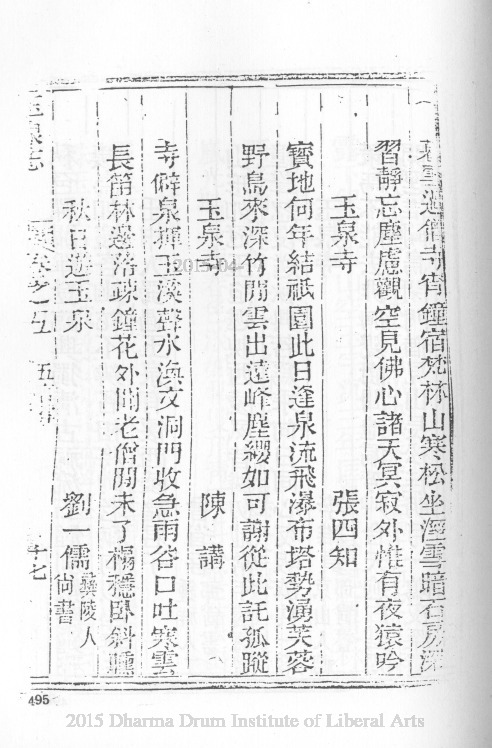 暮雪過僧寺宵鐘宿梵林山寒松坐溼雲暗石房深
習靜忘塵慮觀空見佛心諸天冥寂外惟有夜猿吟
玉泉寺 張四知
寶地何年結祇園此日逢泉流飛瀑布塔勢湧芙蓉
野鳥來深竹閒雲出遠峰塵纓如可謝從此託孤蹤
玉泉寺 陳講
寺僻泉揮玉溪聲水渙文洞門收急雨谷口吐寒雲
長笛林邊落疎鐘花外聞老僧閒未了榻穩臥斜曛
秋日遊玉泉 劉一儒 彝陵人尚書
玉泉志 卷之五
495
2015 Dharma Drum Institute of Liberal Arts